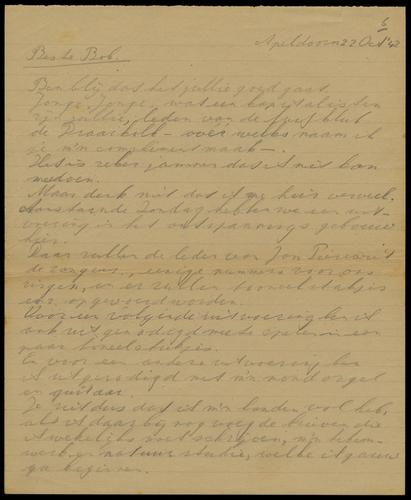 6
Apeldoorn 22 Oct '42
Beste Bob.
Ben blij dat het jullie goed gaat.
Jonge, Jonge, wat een kapitalisten
zijn jullie, leden van de
de Draaikolk – voor welks naam ik
je m'n compliment maak –.
Het is zeker jammer dat ik niet kan
meedoen.
Maar denk niet dat ik me hier verveel.
Aanstaande Zondag hebben we een uit-
voering in het ontspannings gebouw
hier.
Daar zullen de leden van
de zangers, eenige nummers voor ons
zingen, en er zullen tooneelstukjes
enz. opgevoerd worden.
Voor een volgende uitvoering ben ik
ook uitgenoodigd mee te spelen in een
paar tooneelstukjes.
En voor een andere uitvoering ben
ik uitgenoodigd met m'n mondorgel
en guitaar.
Je ziet dus dat ik m'n handen vol heb,
als ik daarbij nog voeg de brieven die
ik wekelijks moet schrijven, m'n
werk en natuur studie, welke ik gauw
ga beginnen.